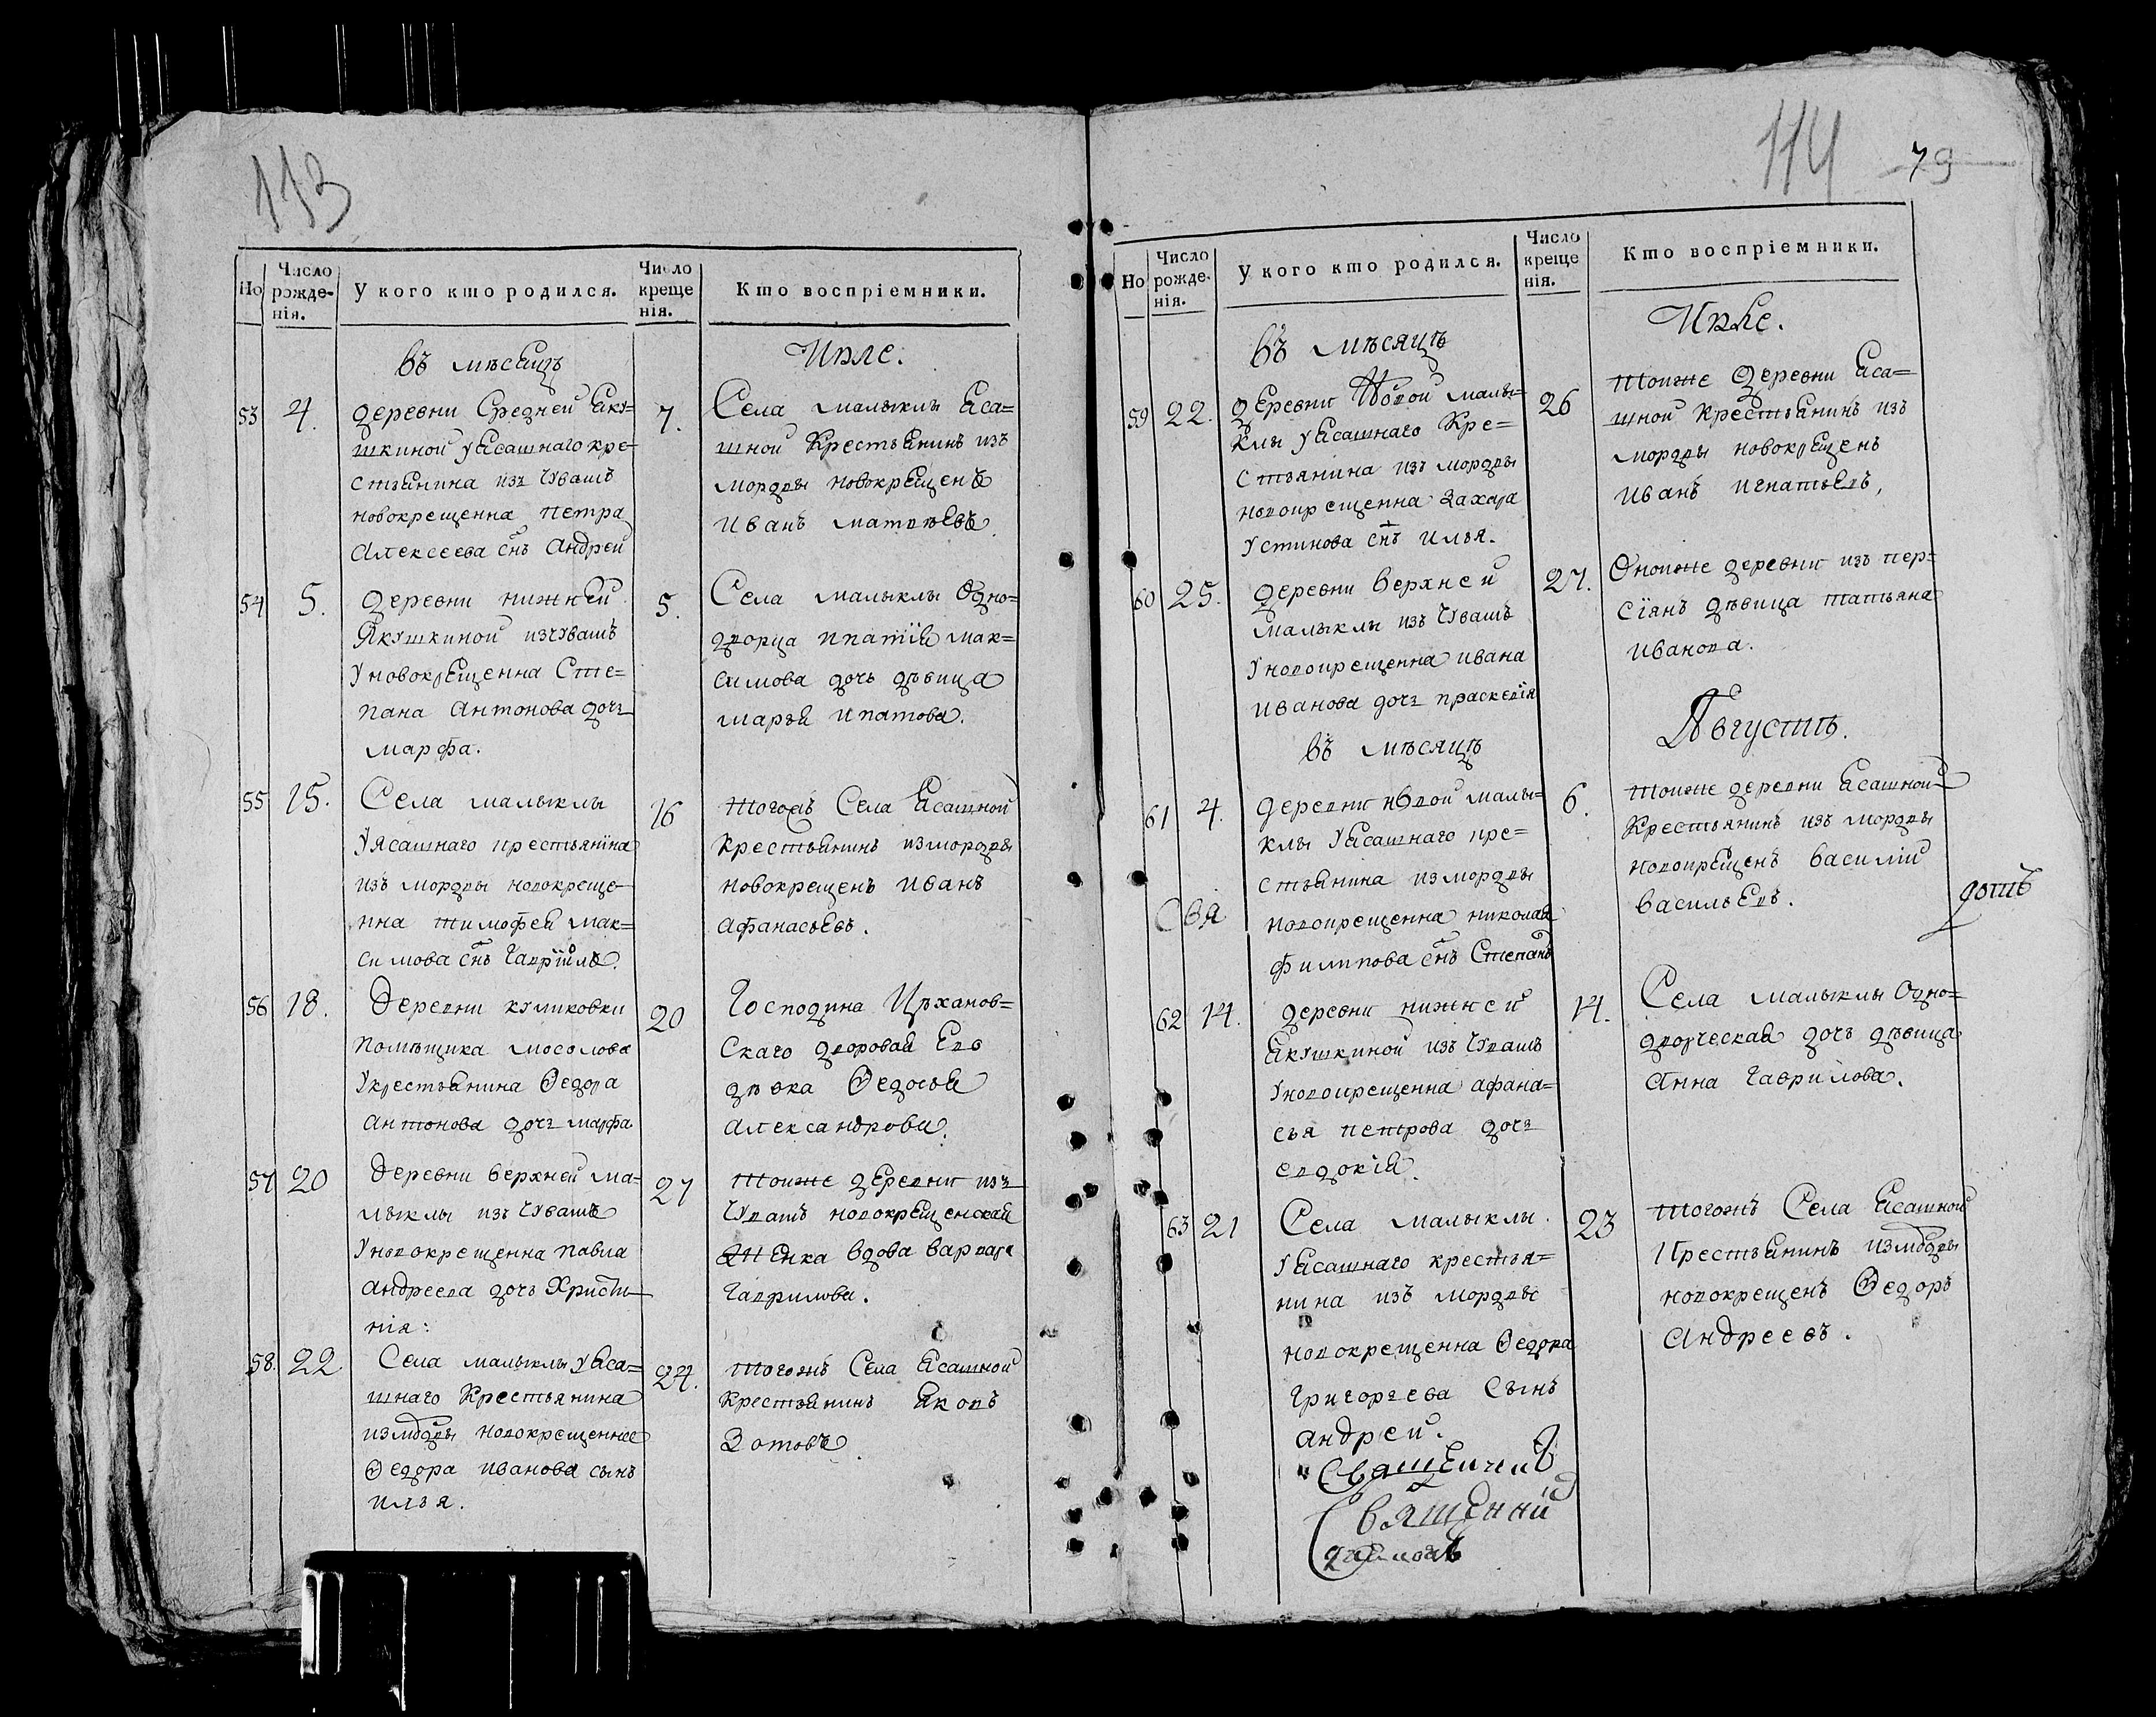 113
Но
Число рожде-нія.
У кого кто родился.
Число креще нія.
Кто воспріемники.
въ мѣсецъ
Июле.
53
4.
деревни Средней Яку=
шкиной уясашнаго кре-
стьянина изъ Чувашъ
новокрещенна петра
Алексеева снъ Андреи
7.
Села малыклы яса=
шной крестьянинъ изъ
мордвы новокрещенъ
Иванъ матвѣевъ
54
5.
деревни нижней
Якушкиной изчувашъ
у новокрещенна Сте=
пана Антонова дочь
марфа.
5.
Села малыклы Одно=
дворца ипатія мак=
симова дочь дѣвица
марья ипатова.
55
15.
Села малыклы
уясашнаго крестьянїна
изъ мордвы новокреще-
нна тимофея мак=
симова снъ Гаврїилъ.
16
тогожъ Села ясашной
крестьянинъ измордвы
новокрещенъ иванъ
афанасьевъ.
56
18.
Деревни куликовки
помѣщика мосолова
укрестьянина Ѳедора
антонова дочь марфа
20
Господина
Скаго дворовая Ево
дѣвка Ѳедосья
александрова.
57
20
Деревни верхней ма=
лыклы изъ Чувашъ
у новокрещенна павла
андреева дочь Христи-
нія:
27
тоиже деревни изъ
Чувашъ новокрещенская
жЕнка вдова варвара
Гаврилова.
58.
22
Села малыклы уяса=
шнаго Крестьянина
измордвы новокрещенна
Ѳедора иванова сынъ
илья.
24.
тогожъ Села ясашной
крестьянинъ яковъ
Зотовъ
114
79
Но
Число рожде-нія.
У кого кто родился.
Число креще нія.
Кто воспріемники.
въ мѣсяцъ
Июле.
59
22.
деревни Новой малы=
клы уясашнаго Кре=
стьянина изъ мордвы
новокрещенна Захара
устинова снъ илья.
26
тоиже деревни яса=
шной крестьянинъ изъ
мордвы новокрещенъ
иванъ игнатьевъ,
60
25.
деревни верхней
малыклы изъ Чувашъ
у новокрещенна ивана
иванова дочь праскевїя
27.
Оноиже деревни изъ пер=
сїянъ дѣвица татьяна
иванова.
въ мѣсяцъ
Августъ.
61
4.
деревни новой малы=
клы уясашнаго кре=
стьянина измордвы
новокрещенна николая
филипова снъ Степанъ
6.
тоиже деревни ясашной
крестьянинъ из мордвы
новокрещенъ василии
васильевъ.
Свя
62
14.
деревни нижней
якушкиной изъ Чувашъ
у новокрещенна афана=
сья петрова дочь
евдокія.
14.
Села малыклы Одно=
дворческая дочь дѣвица
Анна Гаврилова.
63
21
Села малыклы
уясашнаго крестья=
нина изъ мордвы
новокрещенна Ѳедора
Григорьева Сынъ
андреи.
23
тогожъ Села ясашной
крестьянинъ измордвы
новокрещенъ Ѳедоръ
андреевъ.